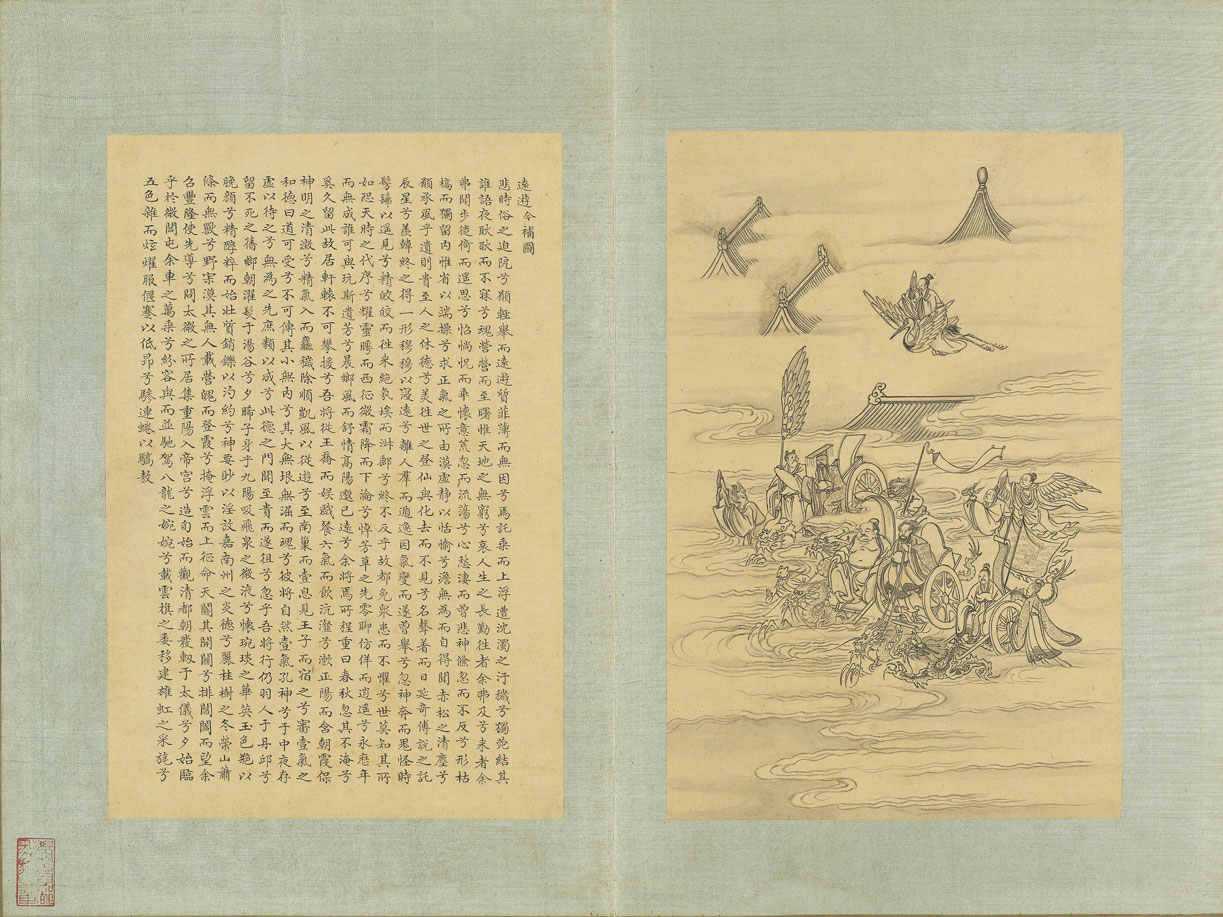 遠遊今補圖
悲時俗之迫阨兮願輕舉而遠遊質菲薄而無因兮焉託乘而上浮遭沈濁之汙穢兮獨菀結其
誰語夜耿耿而不寐兮魂營營而至曙惟天地之無窮兮哀人生之長勤往者余弗及兮来者余
弗聞步徙倚而遥思兮怊惝怳而乖懷意荒忽而流蕩兮心愁悽而曾悲神儵忽而不反兮形枯
槁而獨留内惟省以端操兮求正氣之所由漠虚静以恬愉兮澹無為而自得聞赤松之清塵兮
願承風乎遺則貴至人之休德兮美往世之登仙與化去而不見兮名聲著而日延奇傅説之託
辰星兮羨韓終之得一形穆穆以寖遠兮離人羣而遁逸因氣變而遂曾舉兮忽神奔而鬼怪時
髣髴以遥見兮精皎皎而往来絶氛埃而淑郵兮終不反乎故都免衆患而不懼兮世莫知其所
如恐天時之代序兮耀靈曄而西征微霜降而下淪兮悼芳草之先零聊仿佯而逍遥兮永歷年
而無成誰可與玩斯遺芳兮晨鄉風而舒情高陽邈已遠兮余將焉所程重曰春秋忽其不淹兮
奚久留此故居軒轅不可攀援兮吾將從王喬而娱戲餐六氣而飲沆瀣兮漱正陽而含朝霞保
神明之清澂兮精氣入而麤穢除順凱風以從遊兮至南巢而壹息見王子而宿之兮審壹氣之
和德曰道可受兮不可傳其小無内兮其大無垠無滑而魂兮彼將自然壹氣孔神兮于中夜存
虚以待之兮無為之先庶類以成兮此德之門聞至貴而遂徂兮忽乎吾將行仍羽人于丹邱兮
留不死之舊鄉朝濯髮于湯谷兮夕晞予身乎九陽吸飛泉之微液兮懷琬琰之華英玉色頩以
脕顔兮精醇粹而始壯質銷鑠以汋約兮神要眇以淫放嘉南州之炎德兮麗桂樹之冬榮山蕭
條而無獸兮野寂漠其無人載營魄而登霞兮掩浮雲而上征命天閽其開關兮排閶闔而望余
召豐隆使先導兮問太微之所居集重陽入帝宫兮造旬始而觀清都朝發軔于太儀兮夕始臨
乎於微閭屯余車之萬乘兮紛容與而並馳駕八龍之婉婉兮載雲旗之委移建雄虹之采旄兮
五色雜而炫燿服偃蹇以低昂兮驂連蜷以驕驁